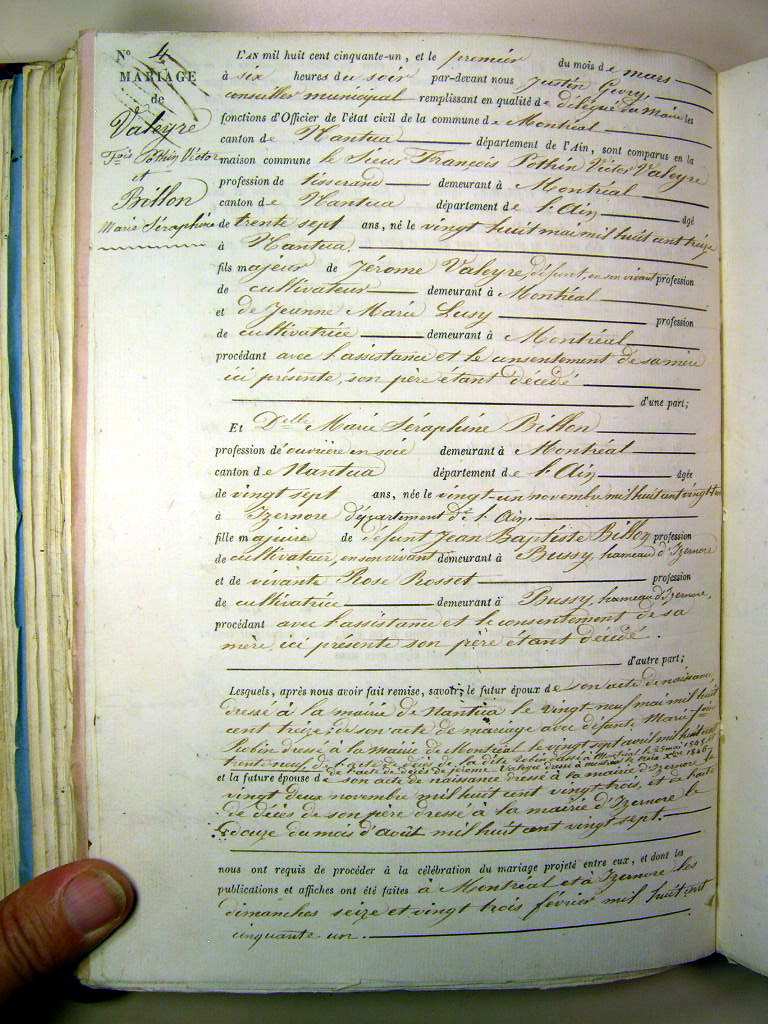 N° 4
MARIAGE
de
Valeyre
Fois Pothin Victor
et
Billon
Marie Séraphine
L'AN mil huit cent cinquante-un, et le premier du mois de mars
à six heures du soir par-devant nous Justin Govry,
conseiller municipal remplissant en qualité de délégué du Maire les
fonctions d'Officier de l'état civil de la commune de Montréal
canton de Nantua département de l'Ain, sont comparus en la
maison commune le Sieur François Pothin Victor Valeyre
profession de tisserand demeurant à Montréal
canton de Nantua département de l'Ain âgé
de trente sept ans, né le vingt huit mai mil huit cent treize
à Nantua
fils majeur de Jérome Valeyre, défunt, en son vivant profession
de cultivateur demeurant à Montréal
et de Jeanne Marie Lusy profession
de cultivatrice demeurant à Montréal
procédant avec l'assistance et le consentement de sa mère
ici présente, son père étant décédé
d'une part;
Et Delle Marie Séraphine Billon
profession d'ouvrière en soie demeurant à Montréal
canton de Nantua département de l'Ain âgée
de vingt sept ans, née le vingt-un novembre mil huit cent vingt trois
à Izernore département de l'Ain
fille majeure de défunt Jean Baptiste Billon profession
de cultivateur, en son vivant demeurant à Bussy, hameau d'Izernore
et de vivante Rose Rosset profession
de cultivatrice demeurant à Bussy, hameau d'Izernore,
procédant avec l'assistance et le consentement de sa
mère, ici présente son père étant décédé.
d'autre part;
Lesquels, après nous avoir fait remise, savoir; le futur époux de son acte de naissance
dressé à la mairie de Nantua le vingt neuf mai mil huit
cent treize; de son acte de mariage avec défunte Marie
dressé à la mairie de Montréal le vingt sept avril mil huit cent
trente neuf, de l'acte de décès de la dite dressé à Montréal le 25 mai 1845,
de l'acte de décès de Jérome Valeyre dressé à Montréal le trois Xbre 1846
et la future épouse de son acte de naissance dressé à la mairie d'Izernore le
vingt deux novembre mil huit cent vingt trois, et de l'acte
de décès de son père dressé à la mairie d'Izernore le
douze du mois d'août mil huit cent vingt sept.
nous ont requis de procéder à la célébration du mariage projeté entre eux, et dont les
publications et affiches ont été faites à Montréal et à Izernore les
dimanches seize et vingt trois février mil huit cent
cinquante un.